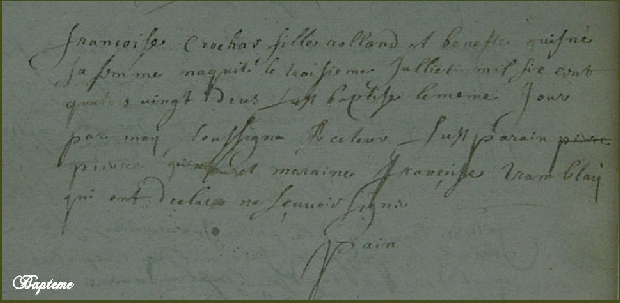 françoise Crochar fille rolland et beneste
sa femme naquit le troisieme Julliet mil sie cent
quatre vingt deus fust baptise le meme Jour
par moy soussigne Recteur fust parain pierre
pierre et maraine françoise tramblay
qui ont declare ne scavoir signe
pain
Bapteme